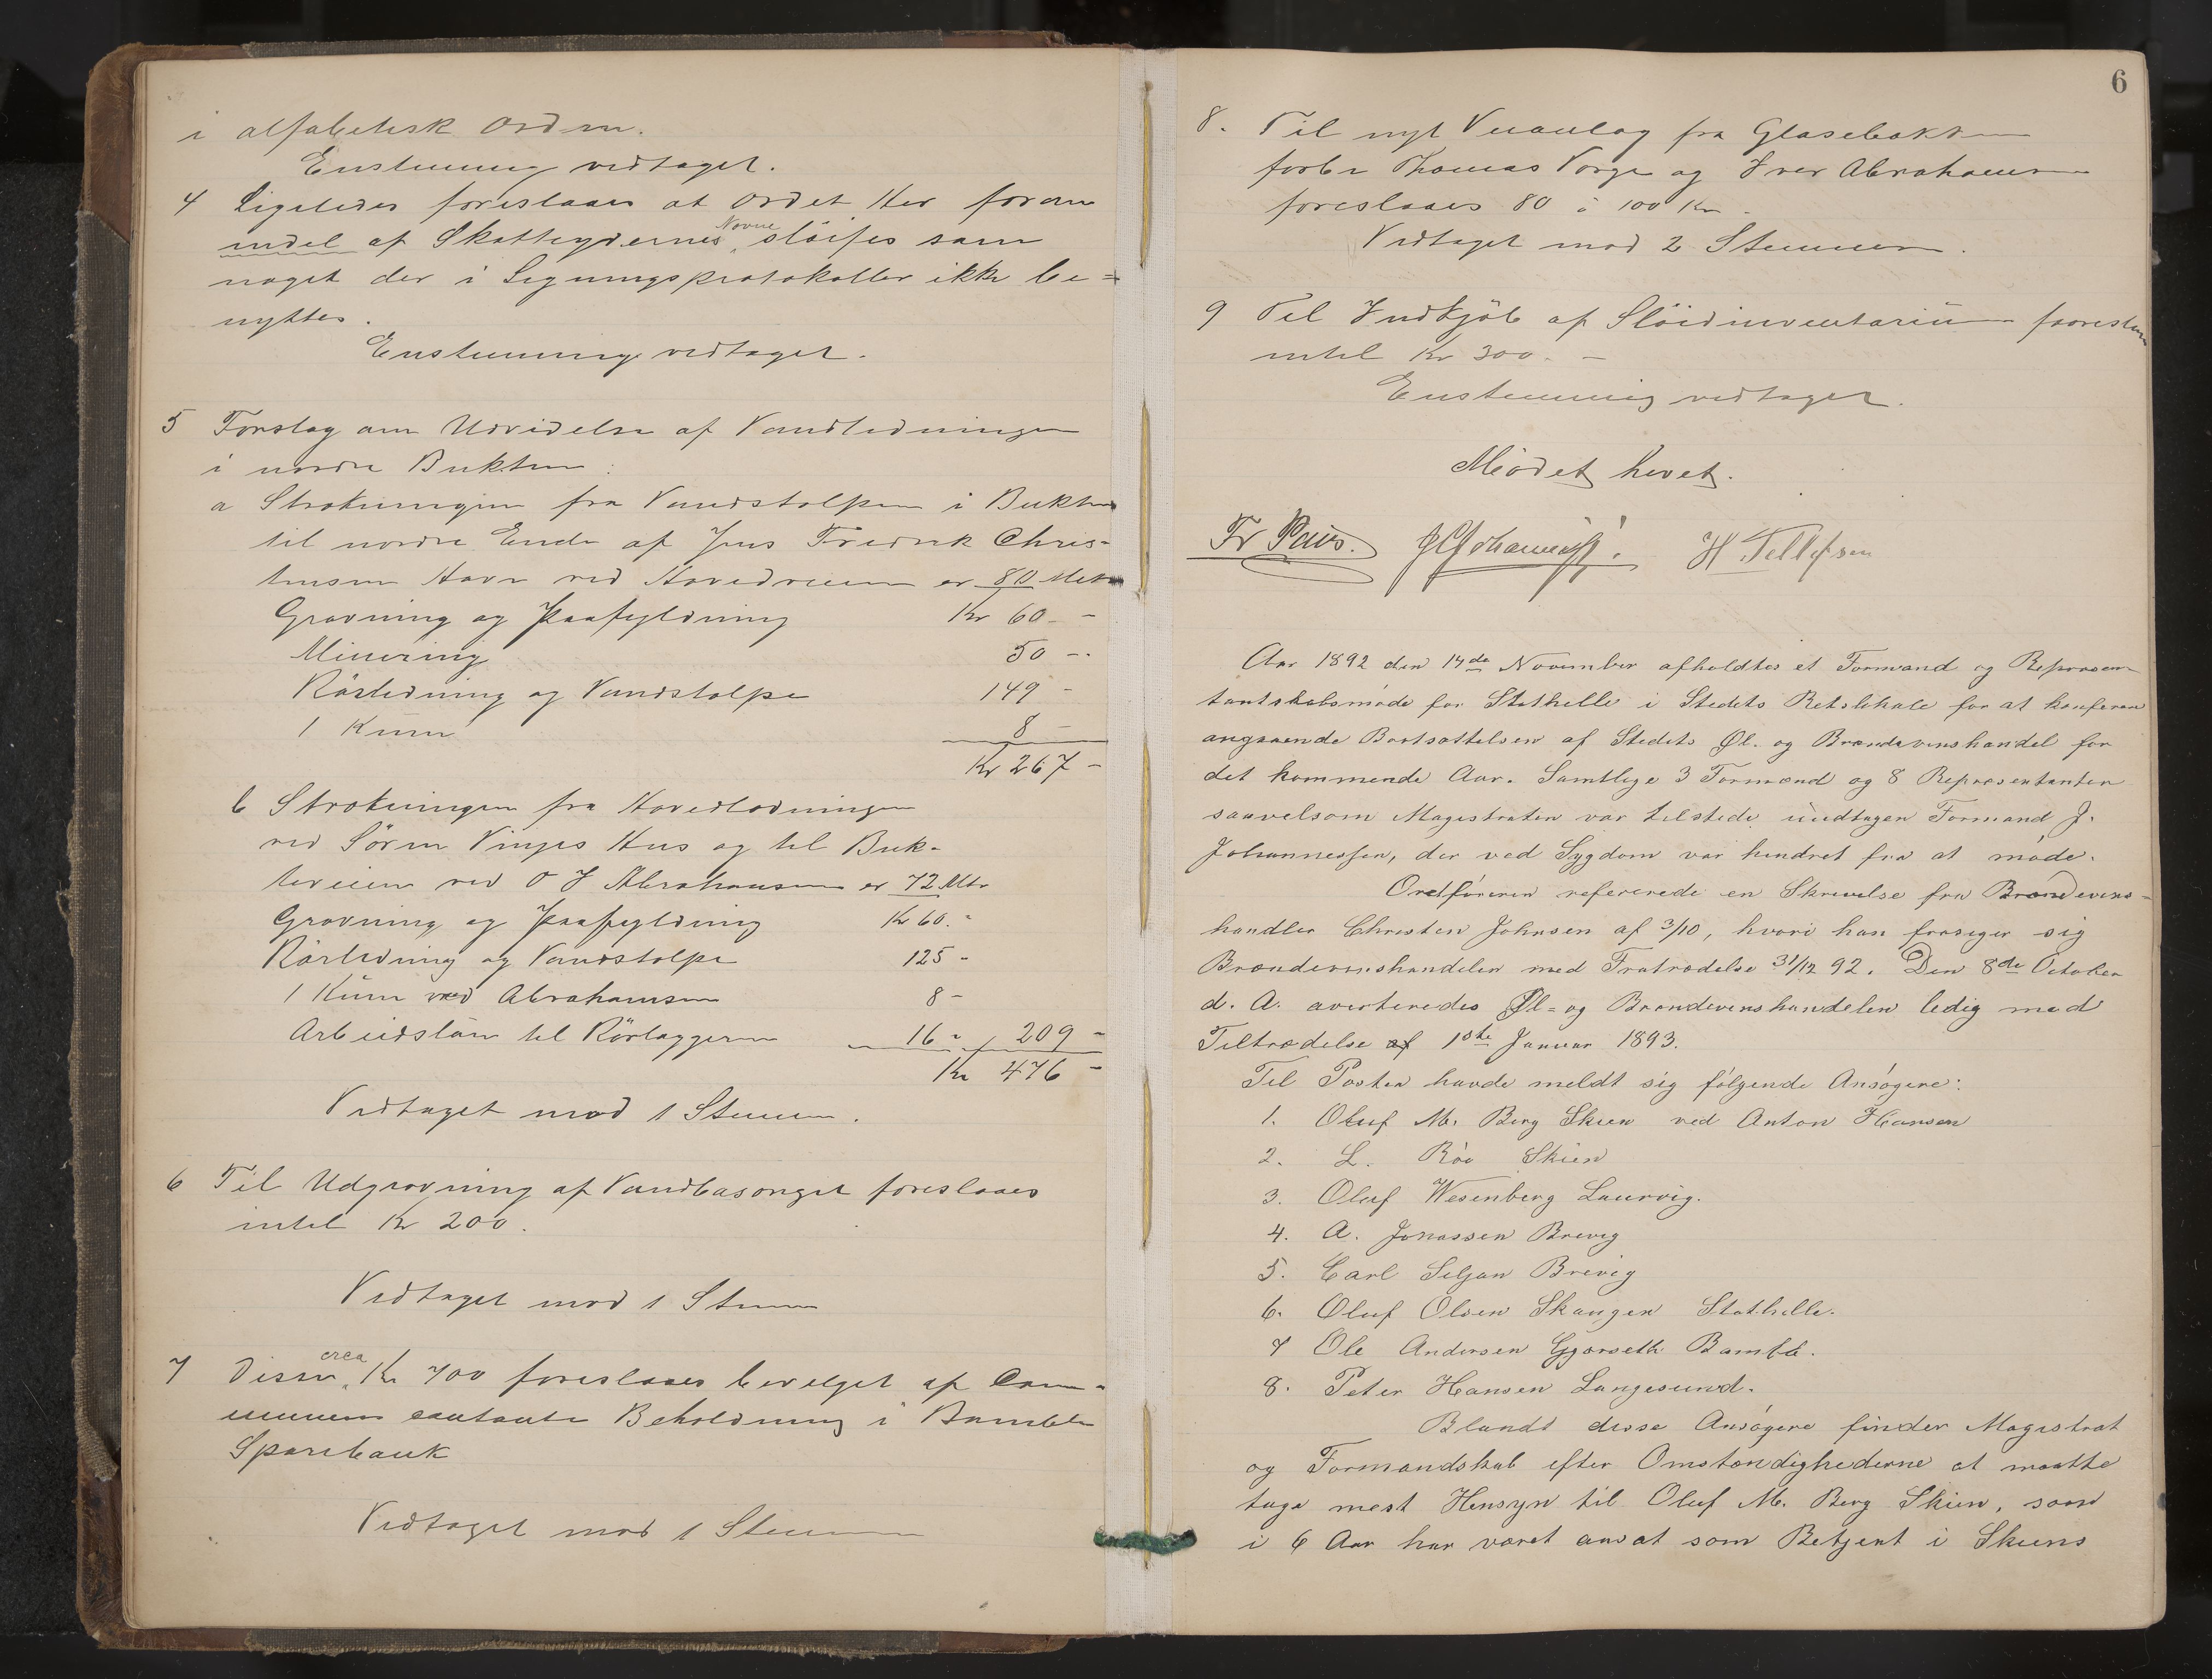 i alfabetisk Orden.
Enstemmig vedtaget.
4 Ligeledes foreslaaes at Ordet Her foran
endel af Skatteydernes Navne sløifes som
noget der i Ligningsprotokoller ikke be=
nyttes.
Enstemmig vedtaget.
5 Forslag om Udvidelse af Vandledningen
i nordre Bukten:
a Strækningen fra Vandstolpen i Bukten
til nordre Ende af Jens Fredrik Chris-
tensen Have ved Hovedveien er 80 Meter
Gravning og Paafyldning Kr 60 -
Minering 50 -
Rørledning og Vandstolpe 149 -
1 Kum 8 -
Kr 267 -
b Strækningen fra Hovedledningen
ved Sören Vinjes Hus og til Buk-
teveien ved O J Abrahamsen er 72 Mtr
Gravning og Paafyldning Kr 60 -
Rørledning og Vandstolpe 125 -
1 Kum ved Abrahamsen 8 -
Arbeidsløn til Rørlæggeren 16 - 209 -
Kr 476 -
Vedtaget mod 1 Stemme.
6 Til Udgravning af Vandbasenget foreslaaes
intil Kr 200.
Vedtaget mod 1 Stemme
7 Disse circa Kr 700 foreslaaes bevilget af Com-
munens contante Beholdning i Bamble
Sparebank
Vedtaget mod 1 Stemme
6
8. Til nyt Veianlæg fra Glasebakken
forbi Thomas Vorge og Iver Abrahamsen
foreslaaes 80 à 100 Kr.
Vedtaget mod 2 Stemmer.
9 Til Indkjöb af Slöidinventarium
intil Kr 300. -
Enstemmig vedtaget.
Mödet hevet.
Fr Paus. J Johannessen. H. Tellefsen
Aar 1892 den 14de November afholdtes et Formand og Repræsen-
tantskabsmöde for Stathelle i Stedets Retslokale for at konferere
angaaende Bortsættelsen af Stedets Øl- og Brændevinshandel for
det kommende Aar. Samtlige 3 Formænd og 8 Repræsentanter
saavelsom Magistraten var tilstede undtagen Formand J.
Johannessen, der ved Sygdom var hindret fra at möde.
Ordföreren refererede en Skrivelse fra Brændevins-
handler Christen Johnsen af 3/10, hvori han frasiger sig
Brændevinshandelen med Fratrædelse 31/12 92. Den 8de October
d. A. averteredes Øl- og Brændevinshandelen ledig med
Tiltrædelse af 1ste Januar 1893.
Til Posten havde meldt sig fölgende Ansögere:
1. Oluf M. Berg Skien ved Anton Hansen
2. L. Röe Skien
3. Oluf Wesenberg Laurvig.
4. A. Jonassen Brevig
5. Carl Seljan Brevig
6. Oluf Olsen Skaugen Stathelle.
7 Ole Andersen Gjerseth Bamble.
8. Peter Hansen Langesund.
Blandt disse Ansögere finder Magistrat
og Formandskab efter Omstændighederne at maatte
tage mest Hensyn til Oluf M. Berg Skien, som
i 6 Aar har været ansat som Betjent i Skiens